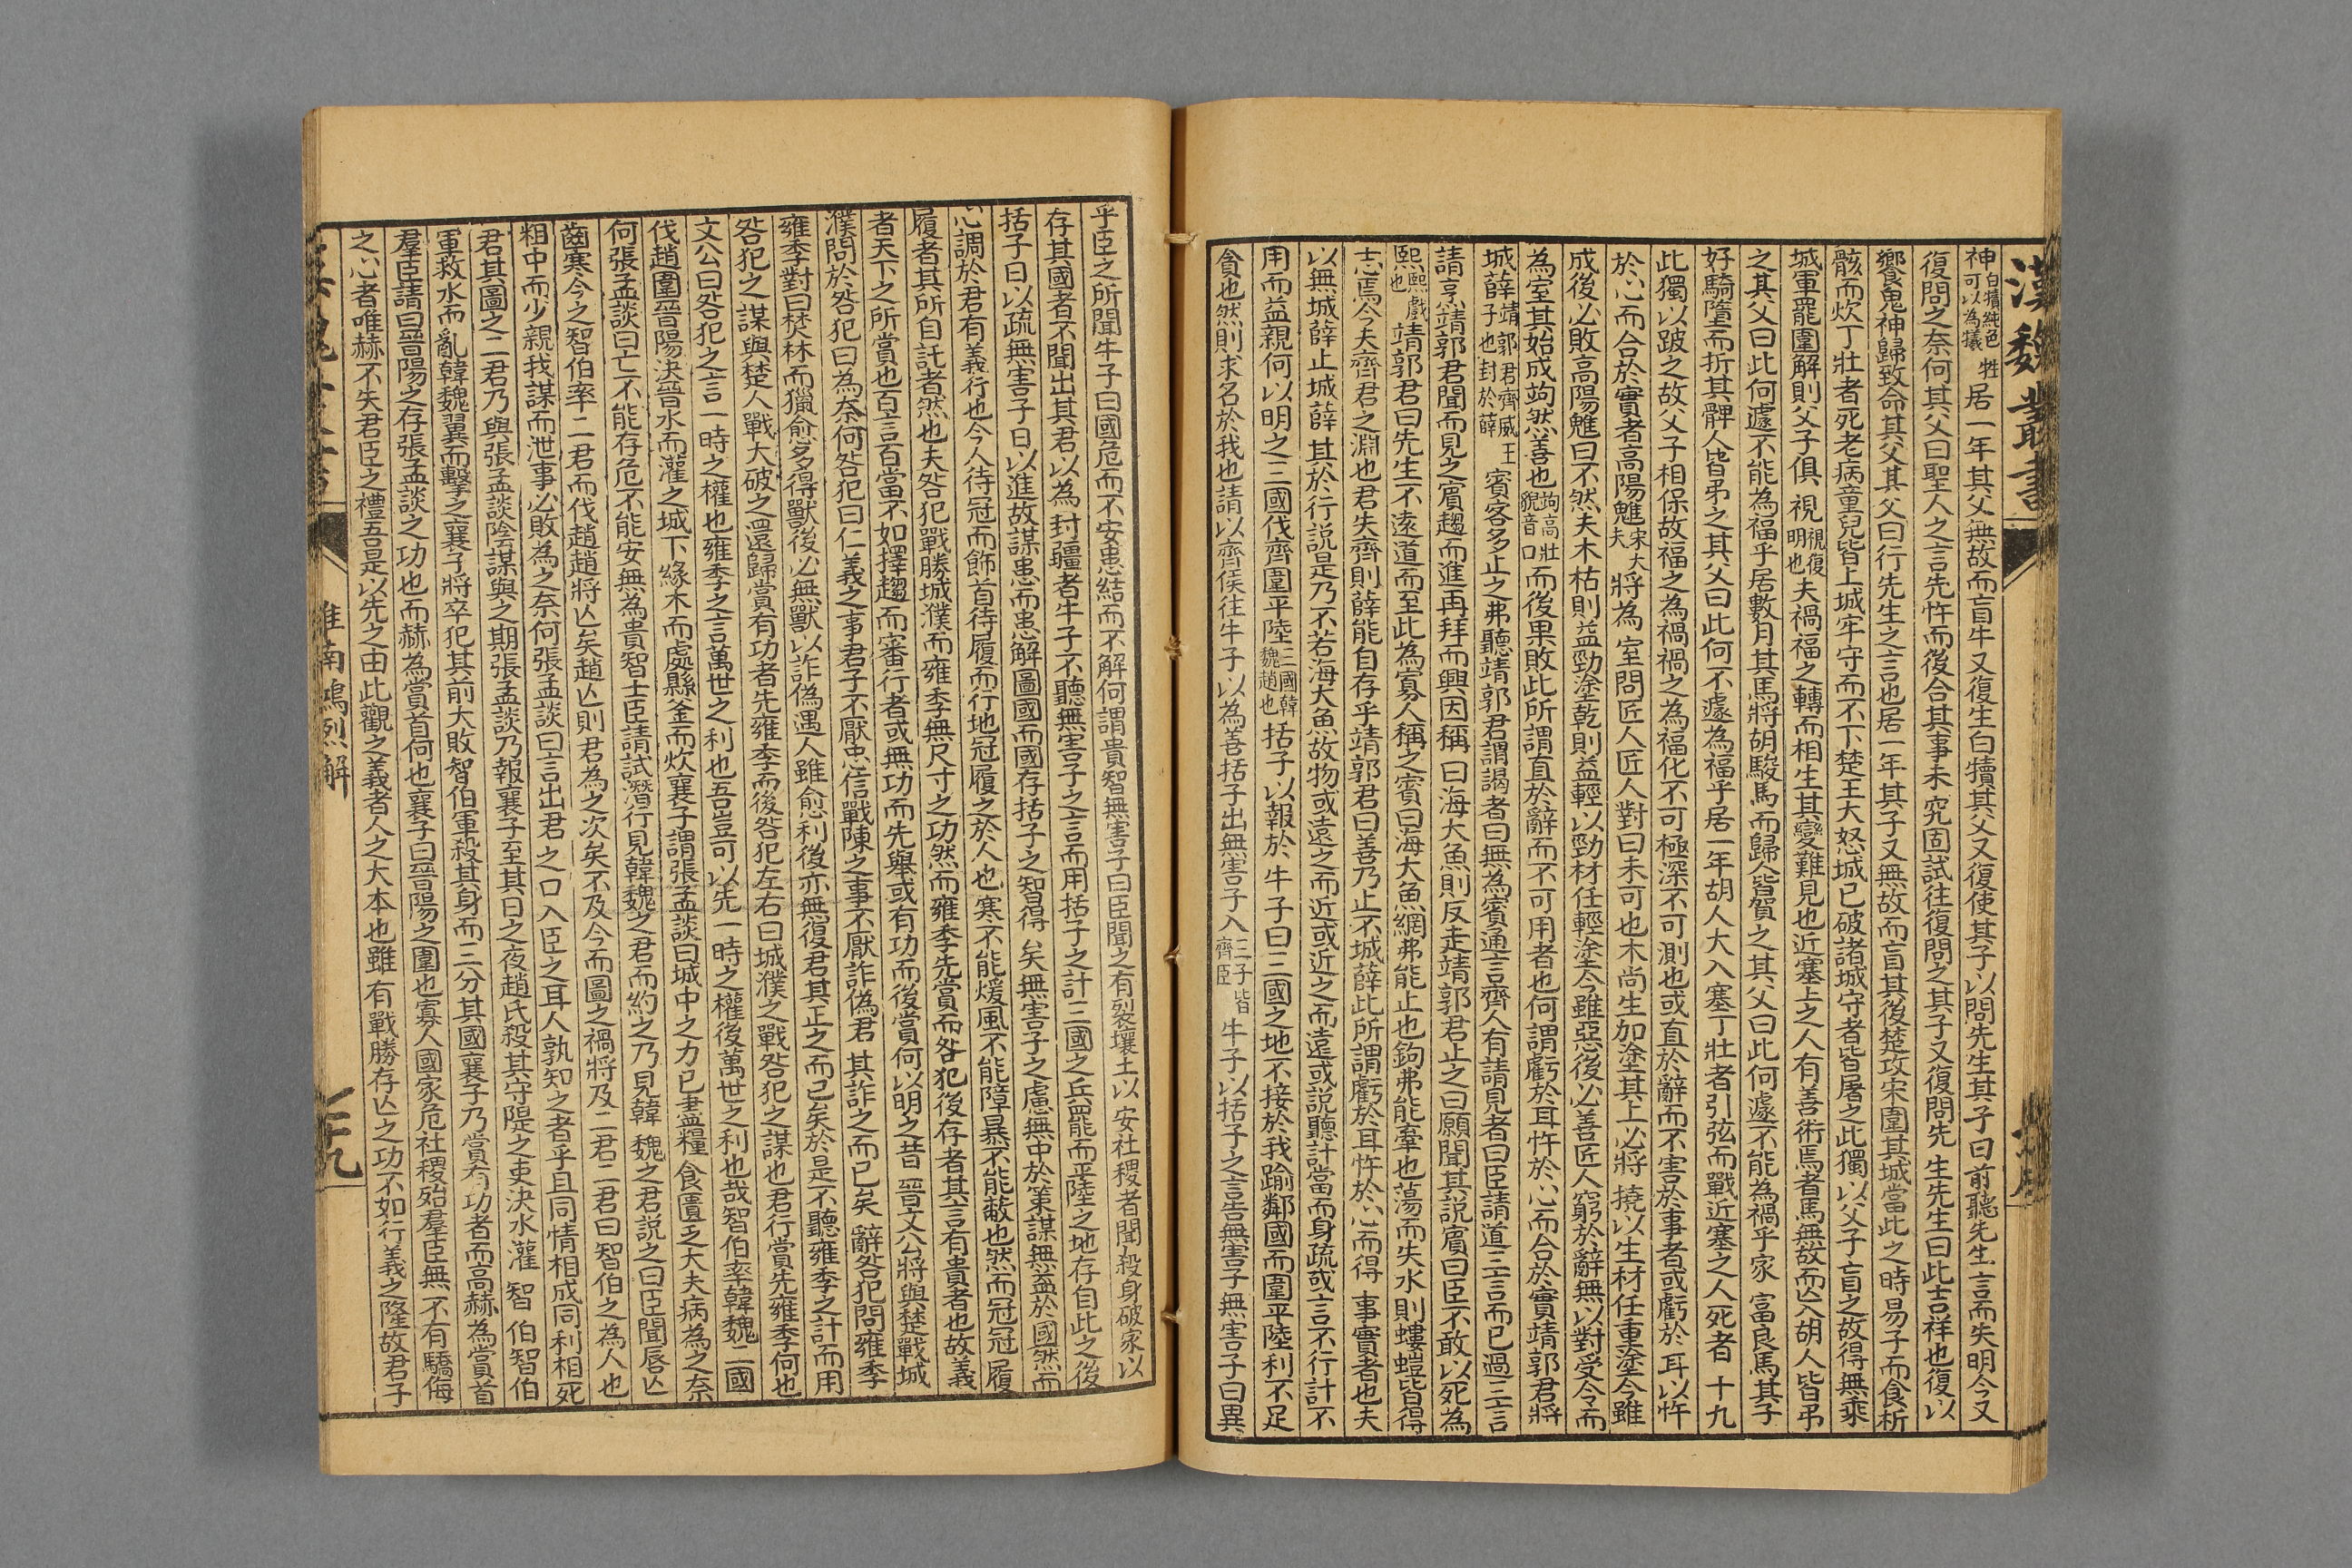 漢魏叢書
神白犢純色可以為犧牲居一年其父無故而盲牛又復生白犢其父又復使其子以問先生其子曰前聽先生言而失明今又
復問之奈何其父曰聖人之言先忤而後合其事未究固試往復問之其子又復問先生先生曰此吉祥也復以
饗鬼神歸致命其父其父曰行先生之言也居一年其子又無故而盲其後楚攻宋圍其城當此之時易子而食析
骸而炊丁壯者死老病童兒皆上城牢守而不下楚王大怒城已破諸城守者皆屠之此獨以父子盲之故得無乘
城軍罷圍解則父子俱視視復明也夫禍福之轉而相生其變難見也近塞上之人有善術馬者馬無故而亾胡人皆弔
之其父曰此何遽不能為福乎居數月其馬將胡駿馬而歸人皆賀之其父曰此何遽不能為禍乎家富良馬其子
好騎墮而折其髀人皆弔之其父曰此何不遽為福乎居一年胡人大入塞丁壯者引弦而戰近塞之人死者十九
此獨以跛之故父子相保故福之為禍禍之為福化不可極深不可測也或直於辭而不害於事者或虧於耳以忤
於心而合於實者高陽魋宋大夫將為室問匠人匠人對曰未可也木尚生加塗其上必將撓以生材任重塗今雖
成後必敗高陽魋曰不然夫木枯則益勁塗乾則益輕以勁材任輕塗今雖惡後必善匠人窮於辭無以對受令而
為室其始成竘然善也竘高壯貌音口而後果敗此所謂直於辭而不可用者也何謂虧於耳忤於心而合於實靖郭君將
城薛靖郭君齊威王子也封於薛賓客多止之弗聽靖郭君謂謁者曰無為賓通言齊人有請見者曰臣請道三言而已過三言
請烹靖郭君聞而見之賓趨而進再拜而興因稱曰海大魚則反走靖郭君止之曰願聞其說賓曰臣不敢以死為
熙熙戲也靖郭君曰先生不遠道而至此為寡人稱之賓曰海大魚網弗能止也鉤弗能牽也蕩而失水則螻螘皆得
志焉今夫齊君之淵也君失齊則薛能自存乎靖郭君曰善乃止不城薛此所謂虧於耳忤於心而得事實者也夫
以無城薛止城薛其於行說是乃不若海大魚故物或遠之而近或近之而遠或說聽計當而身疏或言不行計不
用而益親何以明之三國伐齊圍平陸三國韓魏趙也括子以報於牛子曰三國之地不接於我踰鄰國而圍平陸利不足
貪也然則求名於我也請以齊侯往牛子以為善括子出無害子入三子皆齊臣牛子以括子之言告無害子無害子曰異
乎臣之所聞牛子曰國危而不安患結而不解何謂貴智無害子曰臣聞之有裂壤土以安社稷者聞殺身破家以
存其國者不聞出其君以為封疆者牛子不聽無害子之言而用括子之計三國之兵罷而平陸之地存自此之後
括子日以疏無害子日以進故謀患而患解圖國而國存括子之智得矣無害子之慮無中於策謀無益於國然而
心調於君有義行也今人待冠而飾首待履而行地冠履之於人也寒不能煖風不能障暴不能蔽也然而冠冠履
履者其所自託者然也夫咎犯戰勝城濮而雍季無尺寸之功然而雍季先賞而咎犯後存者其言有貴者也故義
者天下之所賞也百言百當不如擇趨而審行者或無功而先舉或有功而後賞何以明之昔晉文公將與楚戰城
濮問於咎犯曰為奈何咎犯曰仁義之事君子不厭忠信戰陳之事不厭詐偽君其詐之而已矣辭咎犯問雍季
雍季對曰焚林而獵愈多得獸後必無獸以詐偽遇人雖愈利後亦無復君其正之而已矣於是不聽雍季之計而用
咎犯之謀與楚人戰大破之還歸賞有功者先雍季而後咎犯左右曰城濮之戰咎犯之謀也君行賞先雍季何也
文公曰咎犯之言一時之權也雍季之言萬世之利也吾豈可以先一時之權後萬世之利也哉智伯率韓魏二國
伐趙圍晉陽決晉水而灌之城下緣木而處縣釜而炊襄子謂張孟談曰城中之力已盡糧食匱乏大夫病為之奈
何張孟談曰亡不能存危不能安無為貴智士臣請試潛行見韓魏之君而約之乃見韓魏之君說之曰臣聞唇亾
齒寒今之智伯率二君而伐趙趙將亾矣趙亾則君為之次矣不及今而圖之禍將及二君二君曰智伯之為人也
粗中而少親我謀而泄事必敗為之奈何張孟談曰言出君之口入臣之耳人孰知之者乎且同情相成同利相死
君其圖之二君乃與張孟談陰謀與之期張孟談乃報襄子至其日之夜趙氏殺其守隄之吏決水灌智伯智伯
軍救水而亂韓魏翼而擊之襄子將卒犯其前大敗智伯軍殺其身而三分其國襄子乃賞有功者而高赫為賞首
羣臣請曰晉陽之存張孟談之功也而赫為賞首何也襄子曰晉陽之圍也寡人國家危社稷殆羣臣無不有驕侮
之心者唯赫不失君臣之禮吾是以先之由此觀之義者人之大本也雖有戰勝存亾之功不如行義之隆故君子
淮南鴻烈解